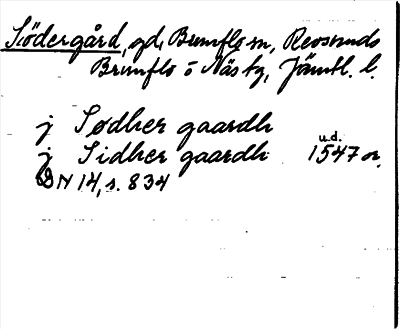 Södergård, gd, Brunflo sn, Revsunds
Brunflo o Näs tg, Jämtl. l.
j Sødher gaardh
j Sidher gaardh u.d. 1547 or.
DN 14, s. 834